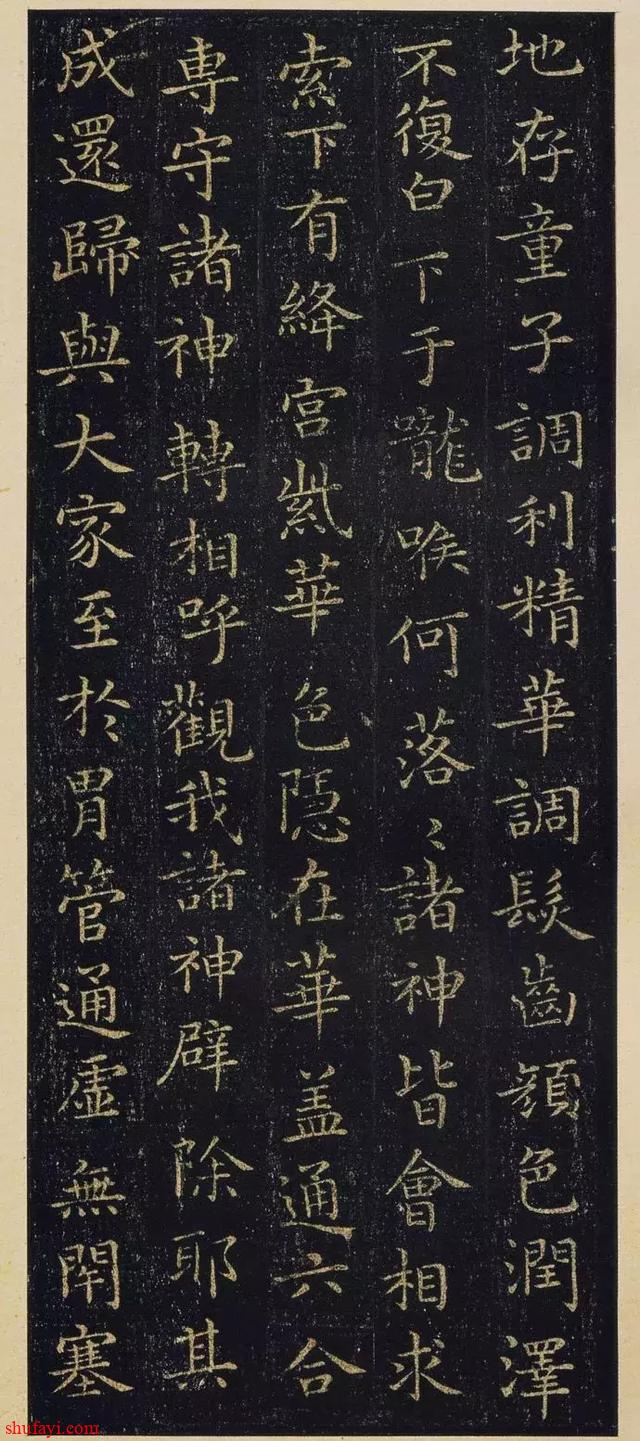 地存童子調利精華調髮齒顏色潤澤
不復白下于嚨喉何落〻諸神皆會相求
索下有絳宮紫華色隱在華盖通六合
專守諸神轉相呼觀我諸神辟除耶其
成還歸與大家至於胃管通虛無閇塞
shufayi.com